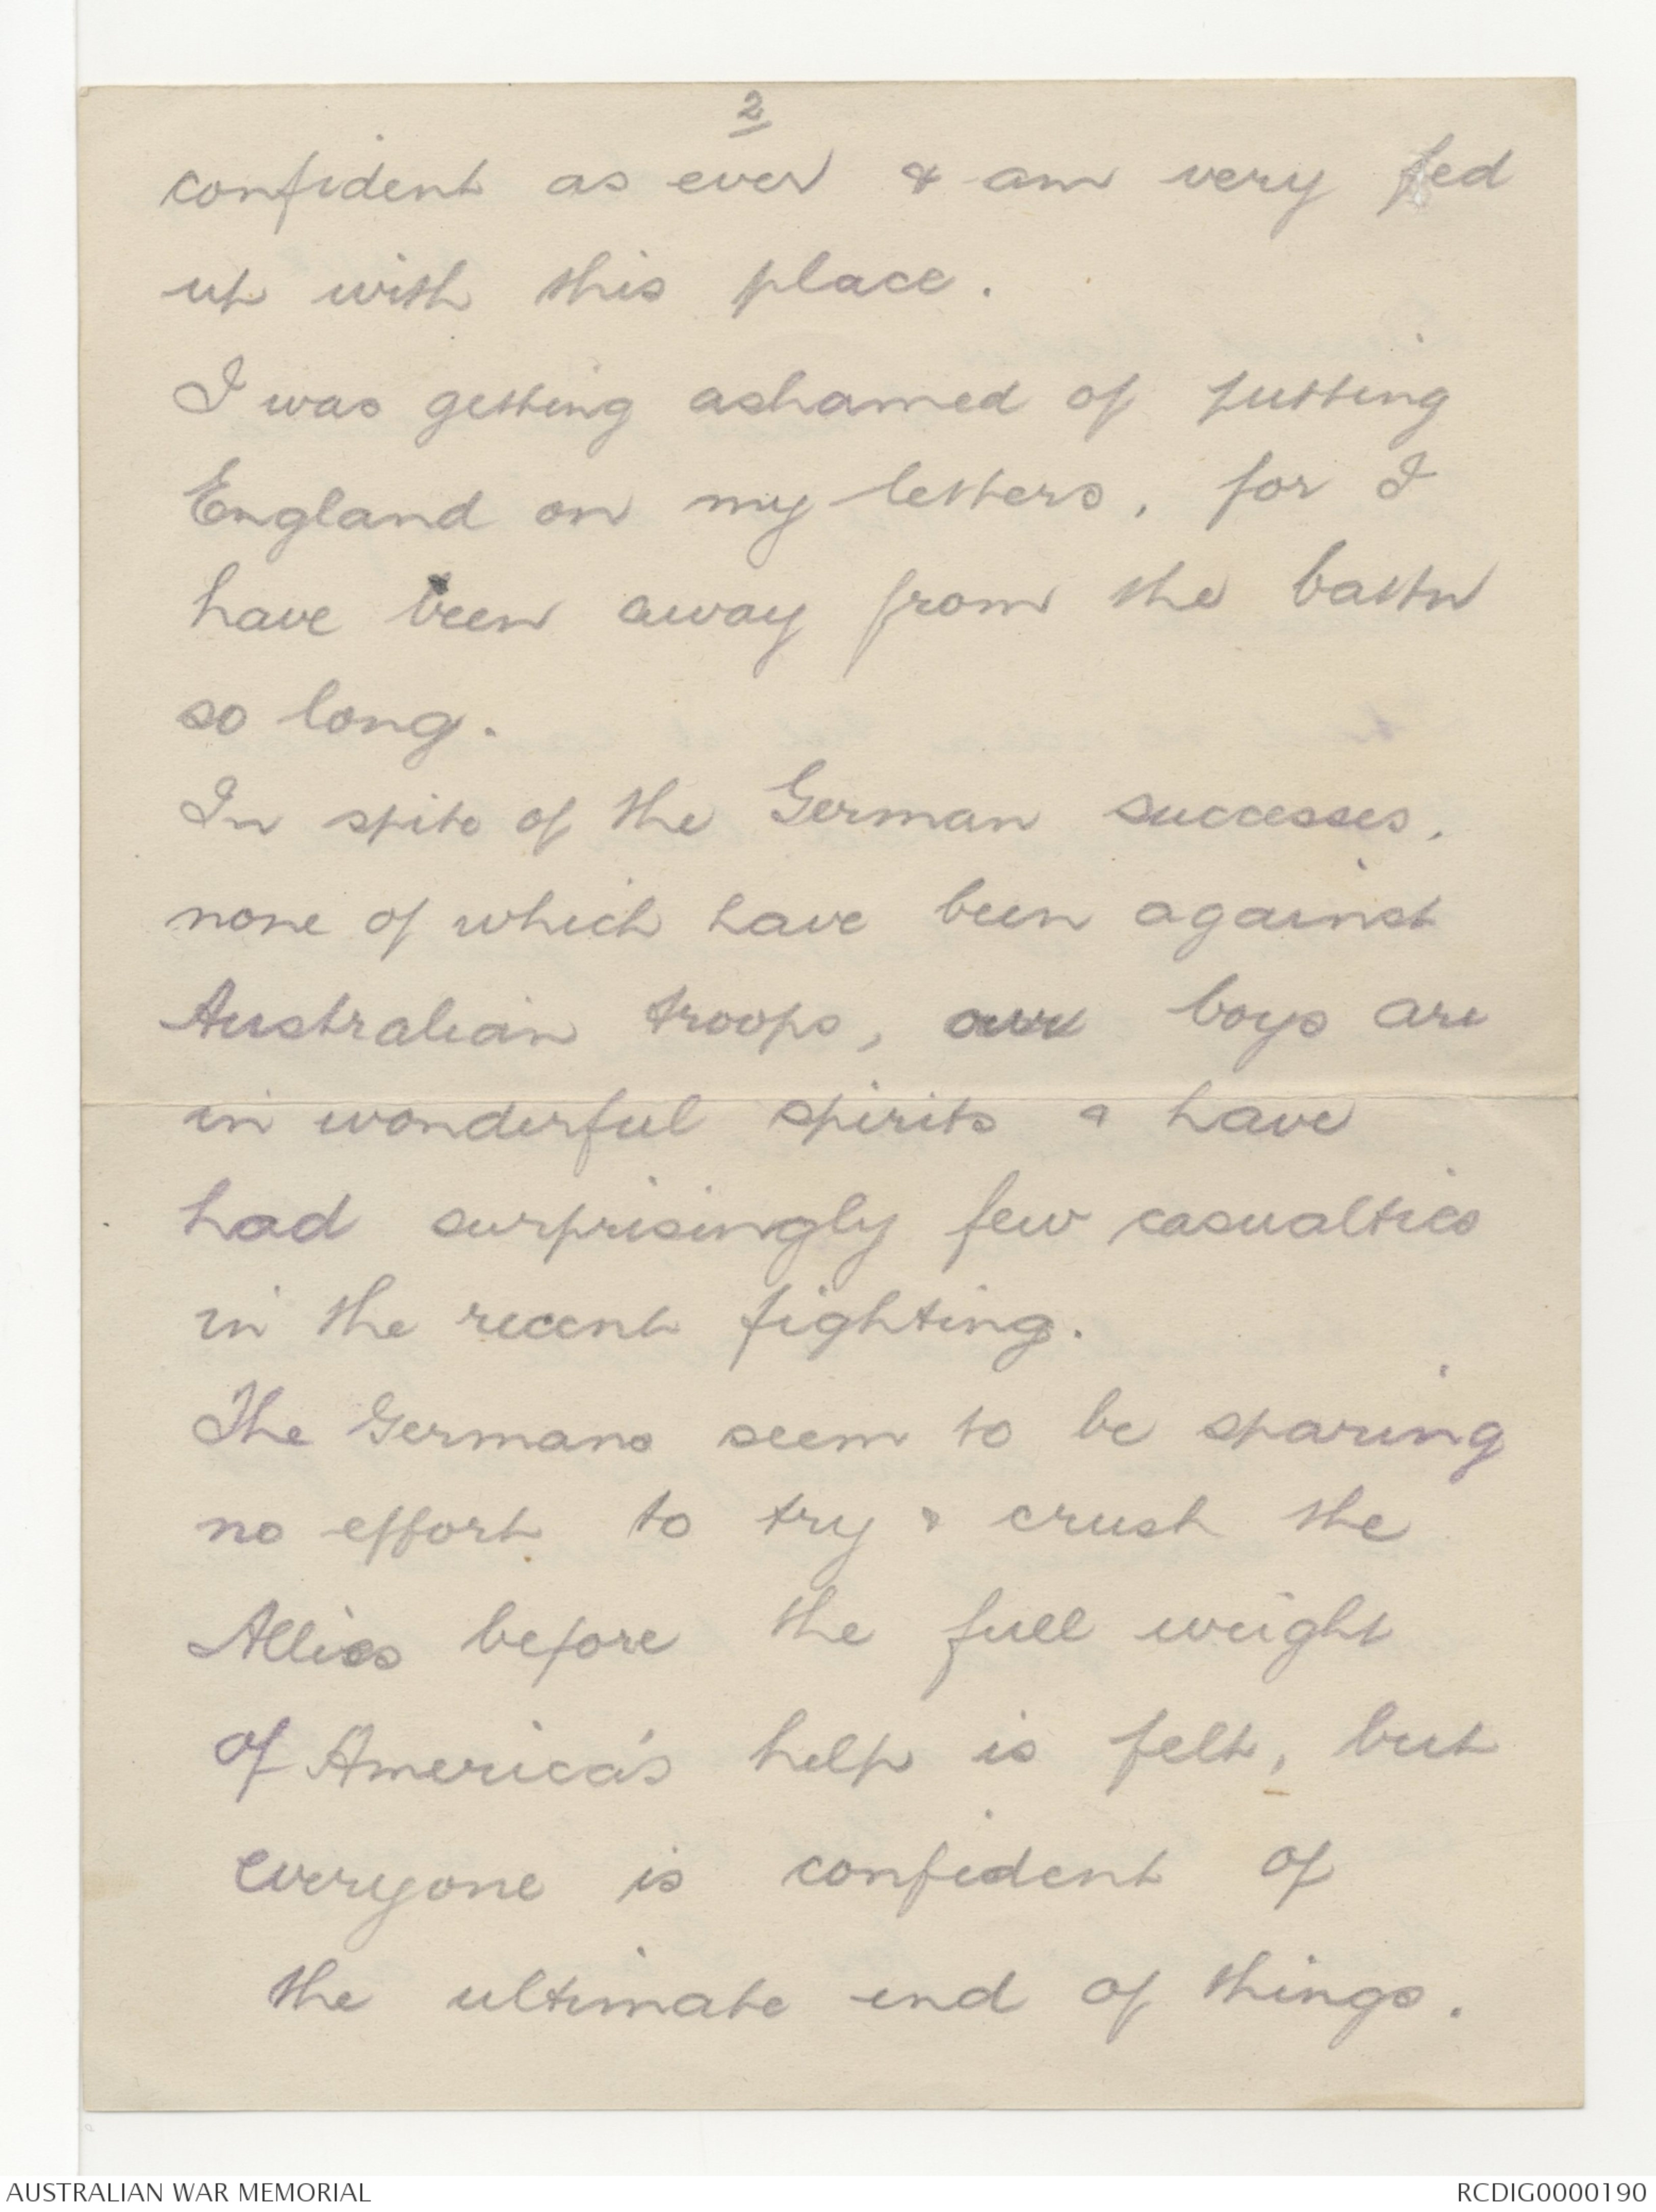 2
confident as ever & am very fed
up with this place.
I was getting ashamed of putting
England on my letters, for I
have been away from the battn
so long.
In spite of the German successes,
none of which have been against
Australian troops, our boys are
in wonderful spirits & have
had surprisingly few casualties
in the recent fighting.
The Germans seem to be sparing
no effort to try & crush the
Allies before the full weight
of America's help is felt, but
everyone is confident of
the ultimate end of things.
AUSTRALIAN WAR MEMORIAL
RCDIG0000190